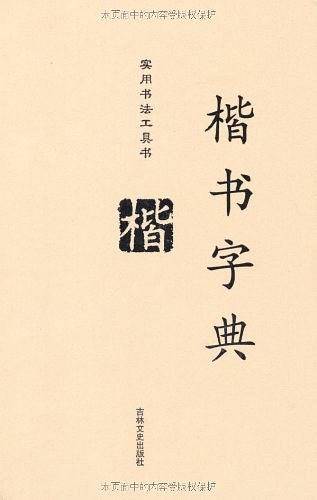 本页面中的内容受版权保护
实用书法工具书
楷书字典
楷
吉林文史出版社
本页面中的内容受版权保护